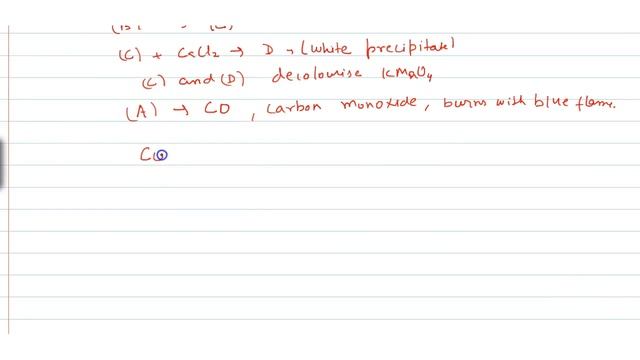 (C) + CaCl2 → D , (white precipitate)
(C) and (D) decolourise KMnO4
(A) → CO , carbon monoxide, burns with blue flame.
CO